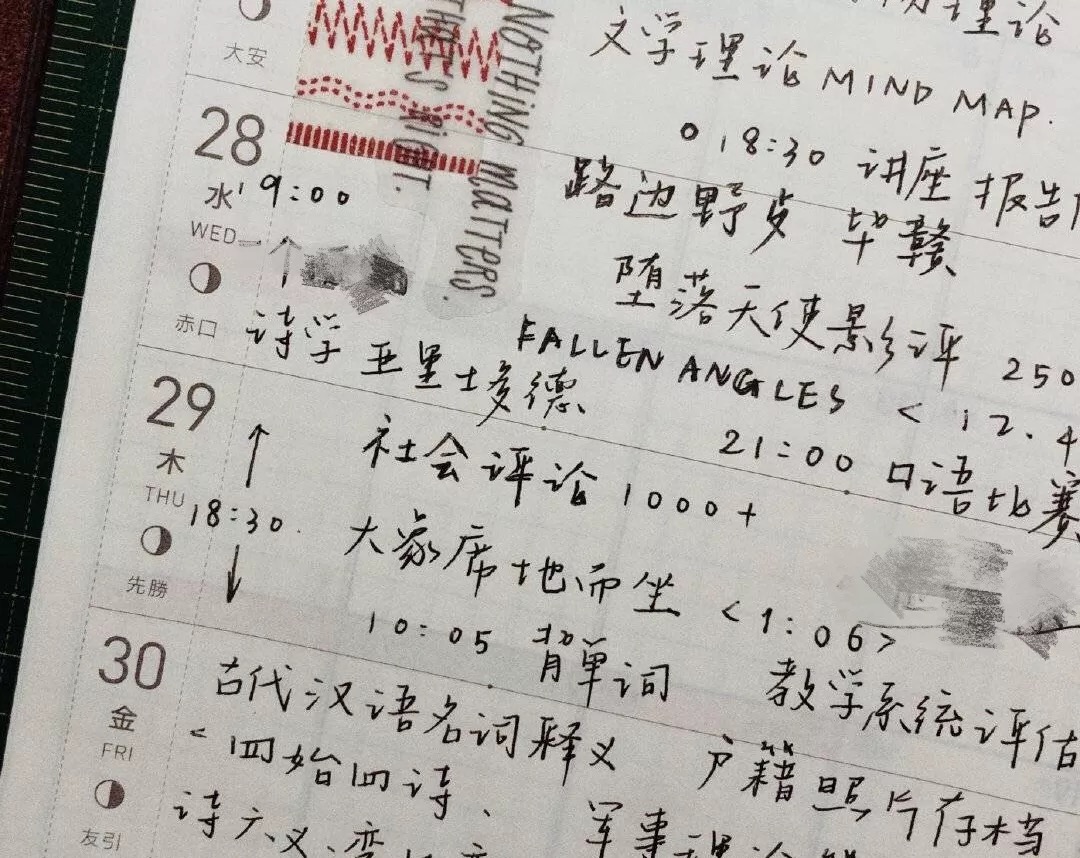 理论
大安
文学理论 MIND MAP.
NOTHING MATTERS.
THAT'S RIGHT.
18:30 讲座 报告
28
水
WED
赤口
19:00
路边野岁 毕赣
堕落天使影评 250
FALLEN ANGLES < 12.4
诗学 亚里士多德
21:00 口语比赛
29
木
THU
先勝
18:30
社会评论 1000+
大象席地而坐 <1:06>
10:05 背单词 教学系统评估
30
金
FRI
友引
古代汉语名词释义 户籍照片存档
< 四始四诗、
诗六义、变
军事理论